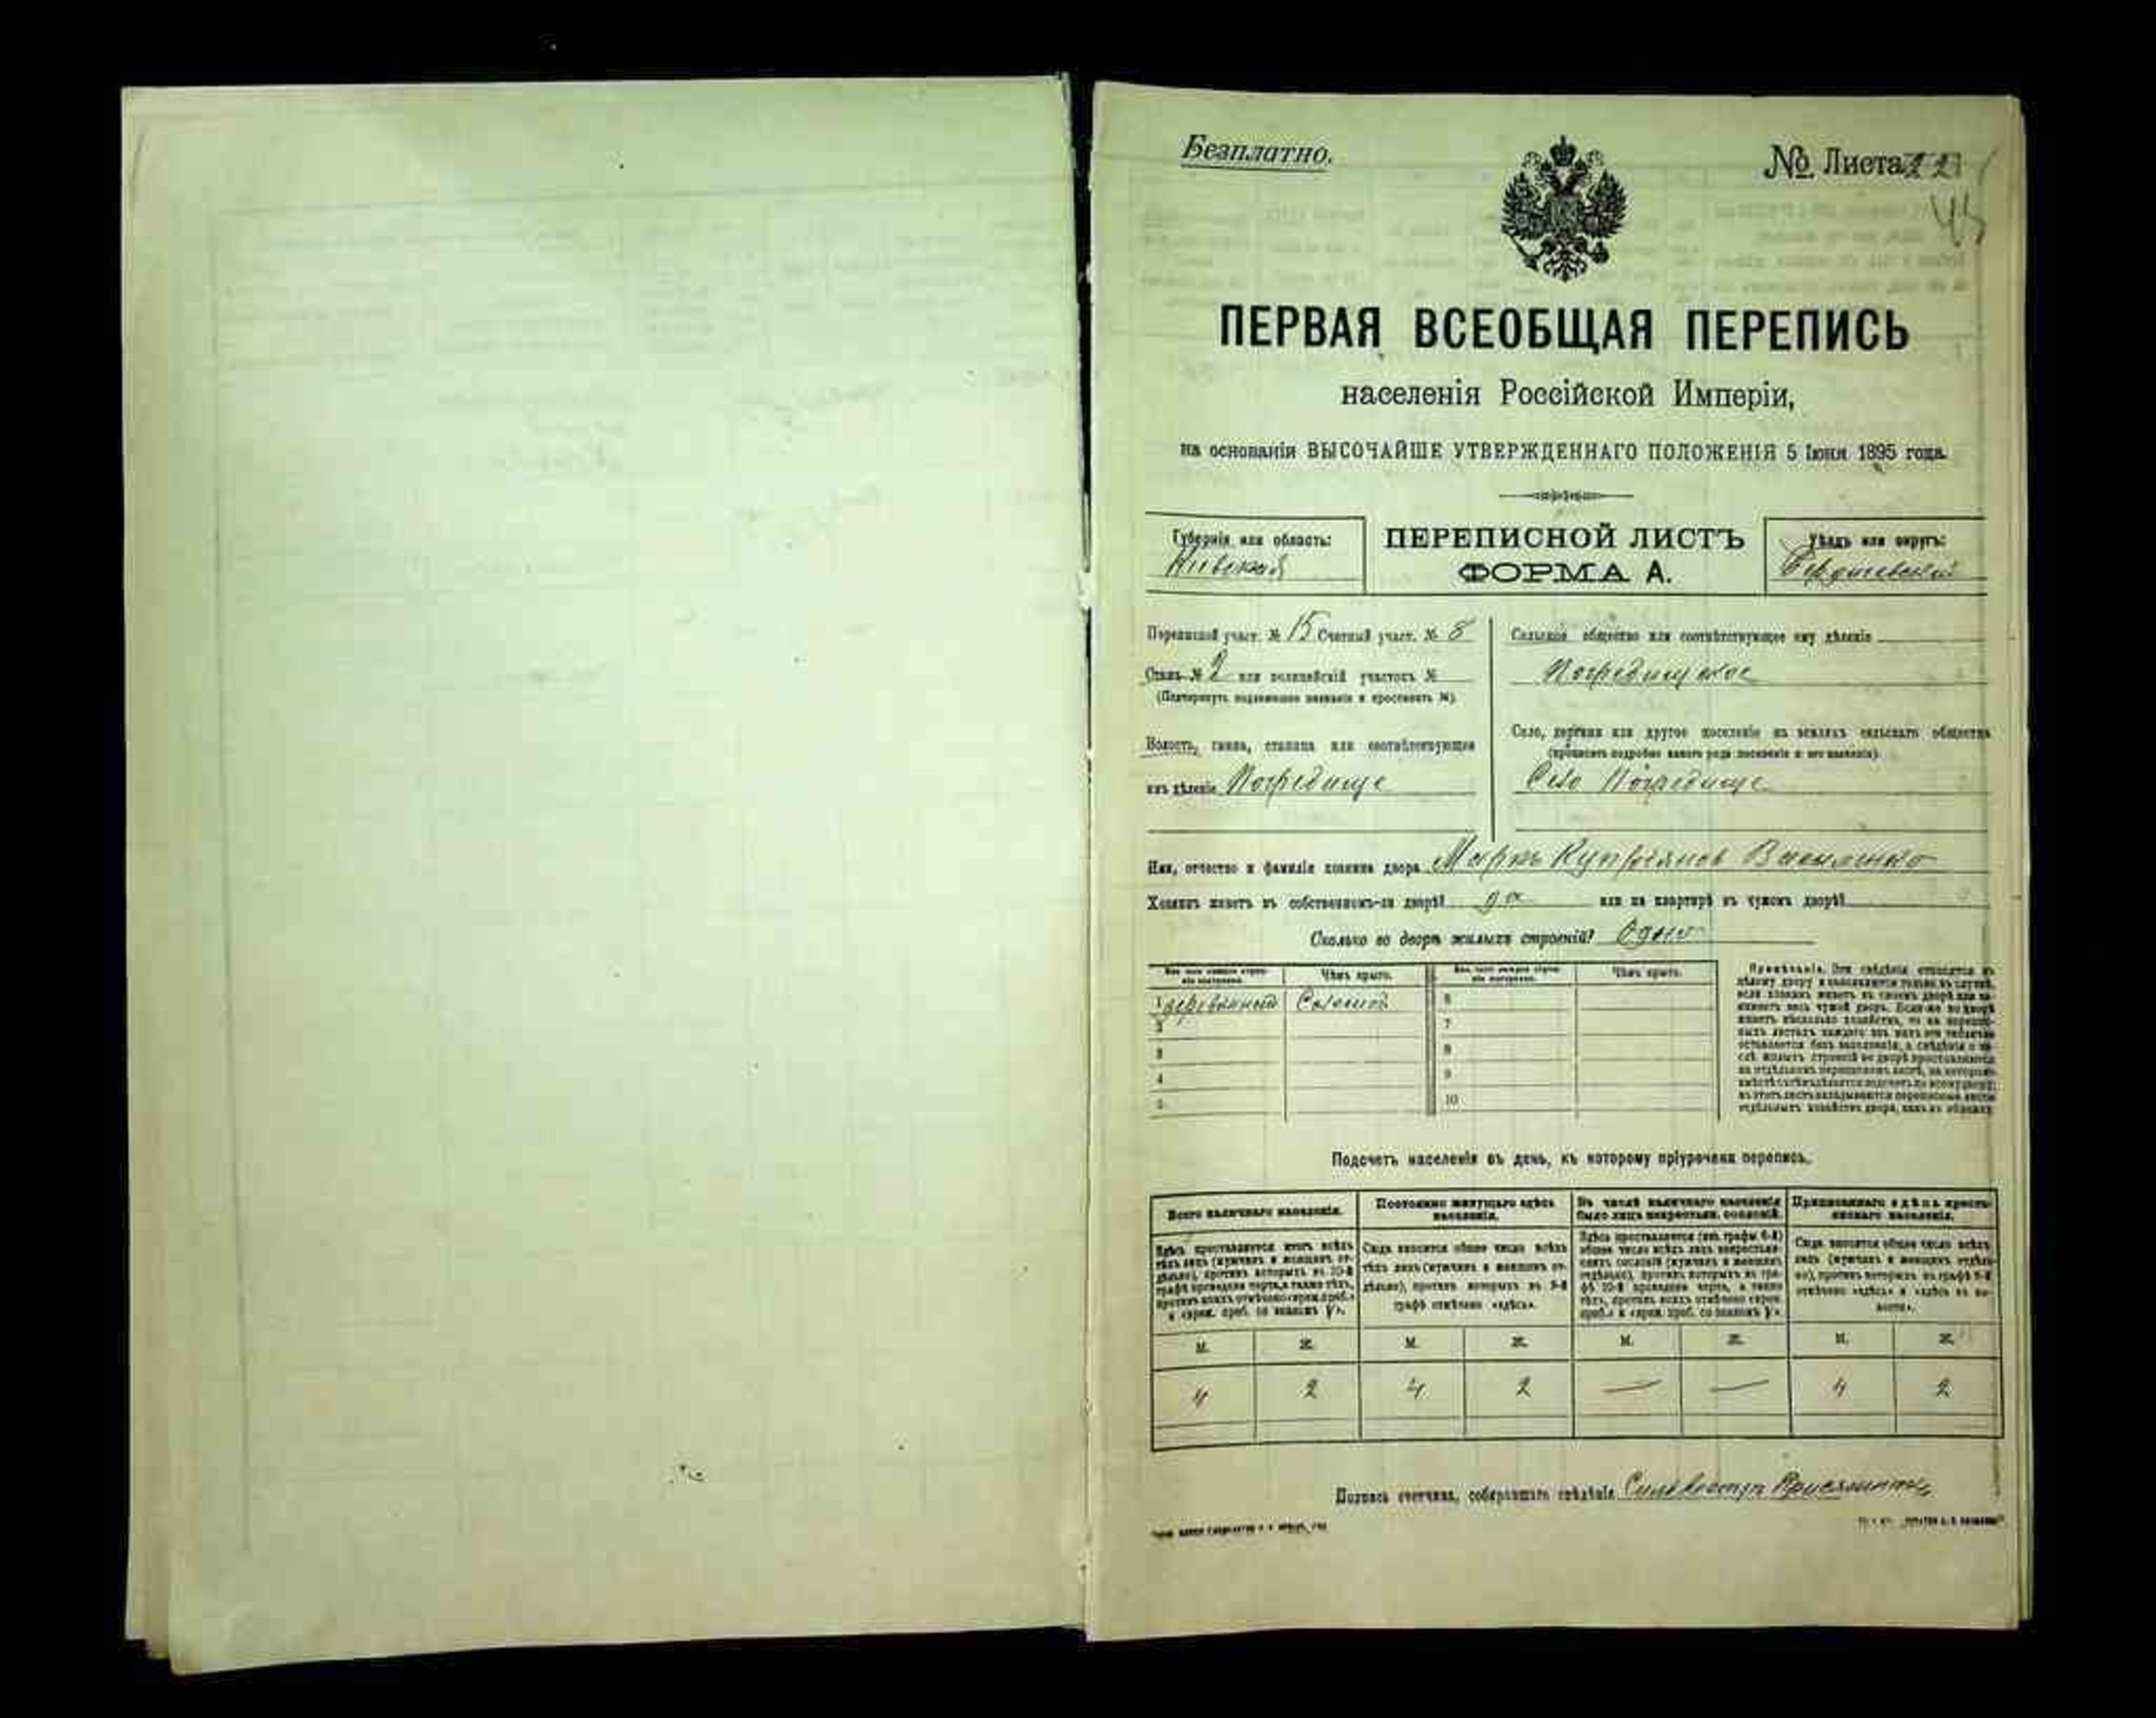 Безплатно.
№ Листа 22
45
ПЕРВАЯ ВСЕОБЩАЯ ПЕРЕПИСЬ
населенія Россійской Имперіи,
на основаніи ВЫСОЧАЙШЕ УТВЕРЖДЕННАГО ПОЛОЖЕНІЯ 5 Іюня 1895 года.
Губернія или область:
Кіевская
ПЕРЕПИСНОЙ ЛИСТЪ
ФОРМА А.
Уѣздъ или округъ:
Бердичевскій
Переписной участ. № 15 Счетный участ. № 8
Станъ № 2 или полицейскій участокъ №
(Подчеркнуть надлежащее названіе и проставить №)
Волость, гмина, станица или соотвѣтствующее
имъ дѣленіе Погребище
Сельское общество или соотвѣтствующее ему дѣленіе
Погребищское
Село, деревня или другое поселеніе на земляхъ сельскаго общества
(прописать подробно какого рода поселеніе и его названіе).
Село Погребище
Имя, отчество и фамилія хозяина двора Марко Купріянов Василенко
Хозяинъ живетъ въ собственномъ-ли дворѣ? да или на квартирѣ въ чужомъ дворѣ?
Сколько во дворѣ жилыхъ строеній? Одно
Изъ чего жилыя строенія построены. Чѣмъ крыто. Изъ чего жилыя строенія построены. Чѣмъ крыто.
1 деревянный Соломой 6
2 7
3 8
4 9
5 10
Примѣчаніе. Эти свѣдѣнія относятся къ
цѣлому двору и заполняются только въ случаѣ,
если хозяинъ живетъ въ своемъ дворѣ или занимаетъ
весь чужой дворъ. Если-же во дворѣ
живетъ нѣсколько хозяйствъ, то на переписныхъ
листахъ каждаго изъ нихъ эти таблички
Подсчетъ населенія въ день, къ которому пріурочена перепись.
Всего наличнаго населенія.
Здѣсь проставляется итогъ всѣхъ
тѣхъ лицъ (мужчинъ и женщинъ отдѣльно),
противъ которыхъ въ 10-й
графѣ проведена черта, а также тѣхъ,
противъ коихъ отмѣчено «врем. преб.»
Постоянно живущаго здѣсь
населенія.
Сюда вносится общее число всѣхъ
тѣхъ лицъ (мужчинъ и женщинъ отдѣльно),
противъ которыхъ въ 9-й
графѣ отмѣчено «здѣсь».
Въ числѣ наличнаго населенія
было лицъ некрестьян. сословій.
Здѣсь проставляется (изъ графы 6-й)
общее число всѣхъ лицъ некрестьянскихъ
сословій (мужчинъ и женщинъ
отдѣльно), противъ которыхъ въ графѣ
10-й проведена черта, а также
тѣхъ, противъ коихъ отмѣчено «врем.
Приписаннаго здѣсь крестьянскаго
населенія.
Сюда вносится общее число всѣхъ
лицъ (мужчинъ и женщинъ отдѣльно),
противъ которыхъ въ графѣ 8-й
отмѣчено «здѣсь» и «здѣсь въ волости».
М. Ж. М. Ж. М. Ж. М. Ж.
4 2 4 2 — — 4 2
Подпись счетчика, собиравшаго свѣдѣнія